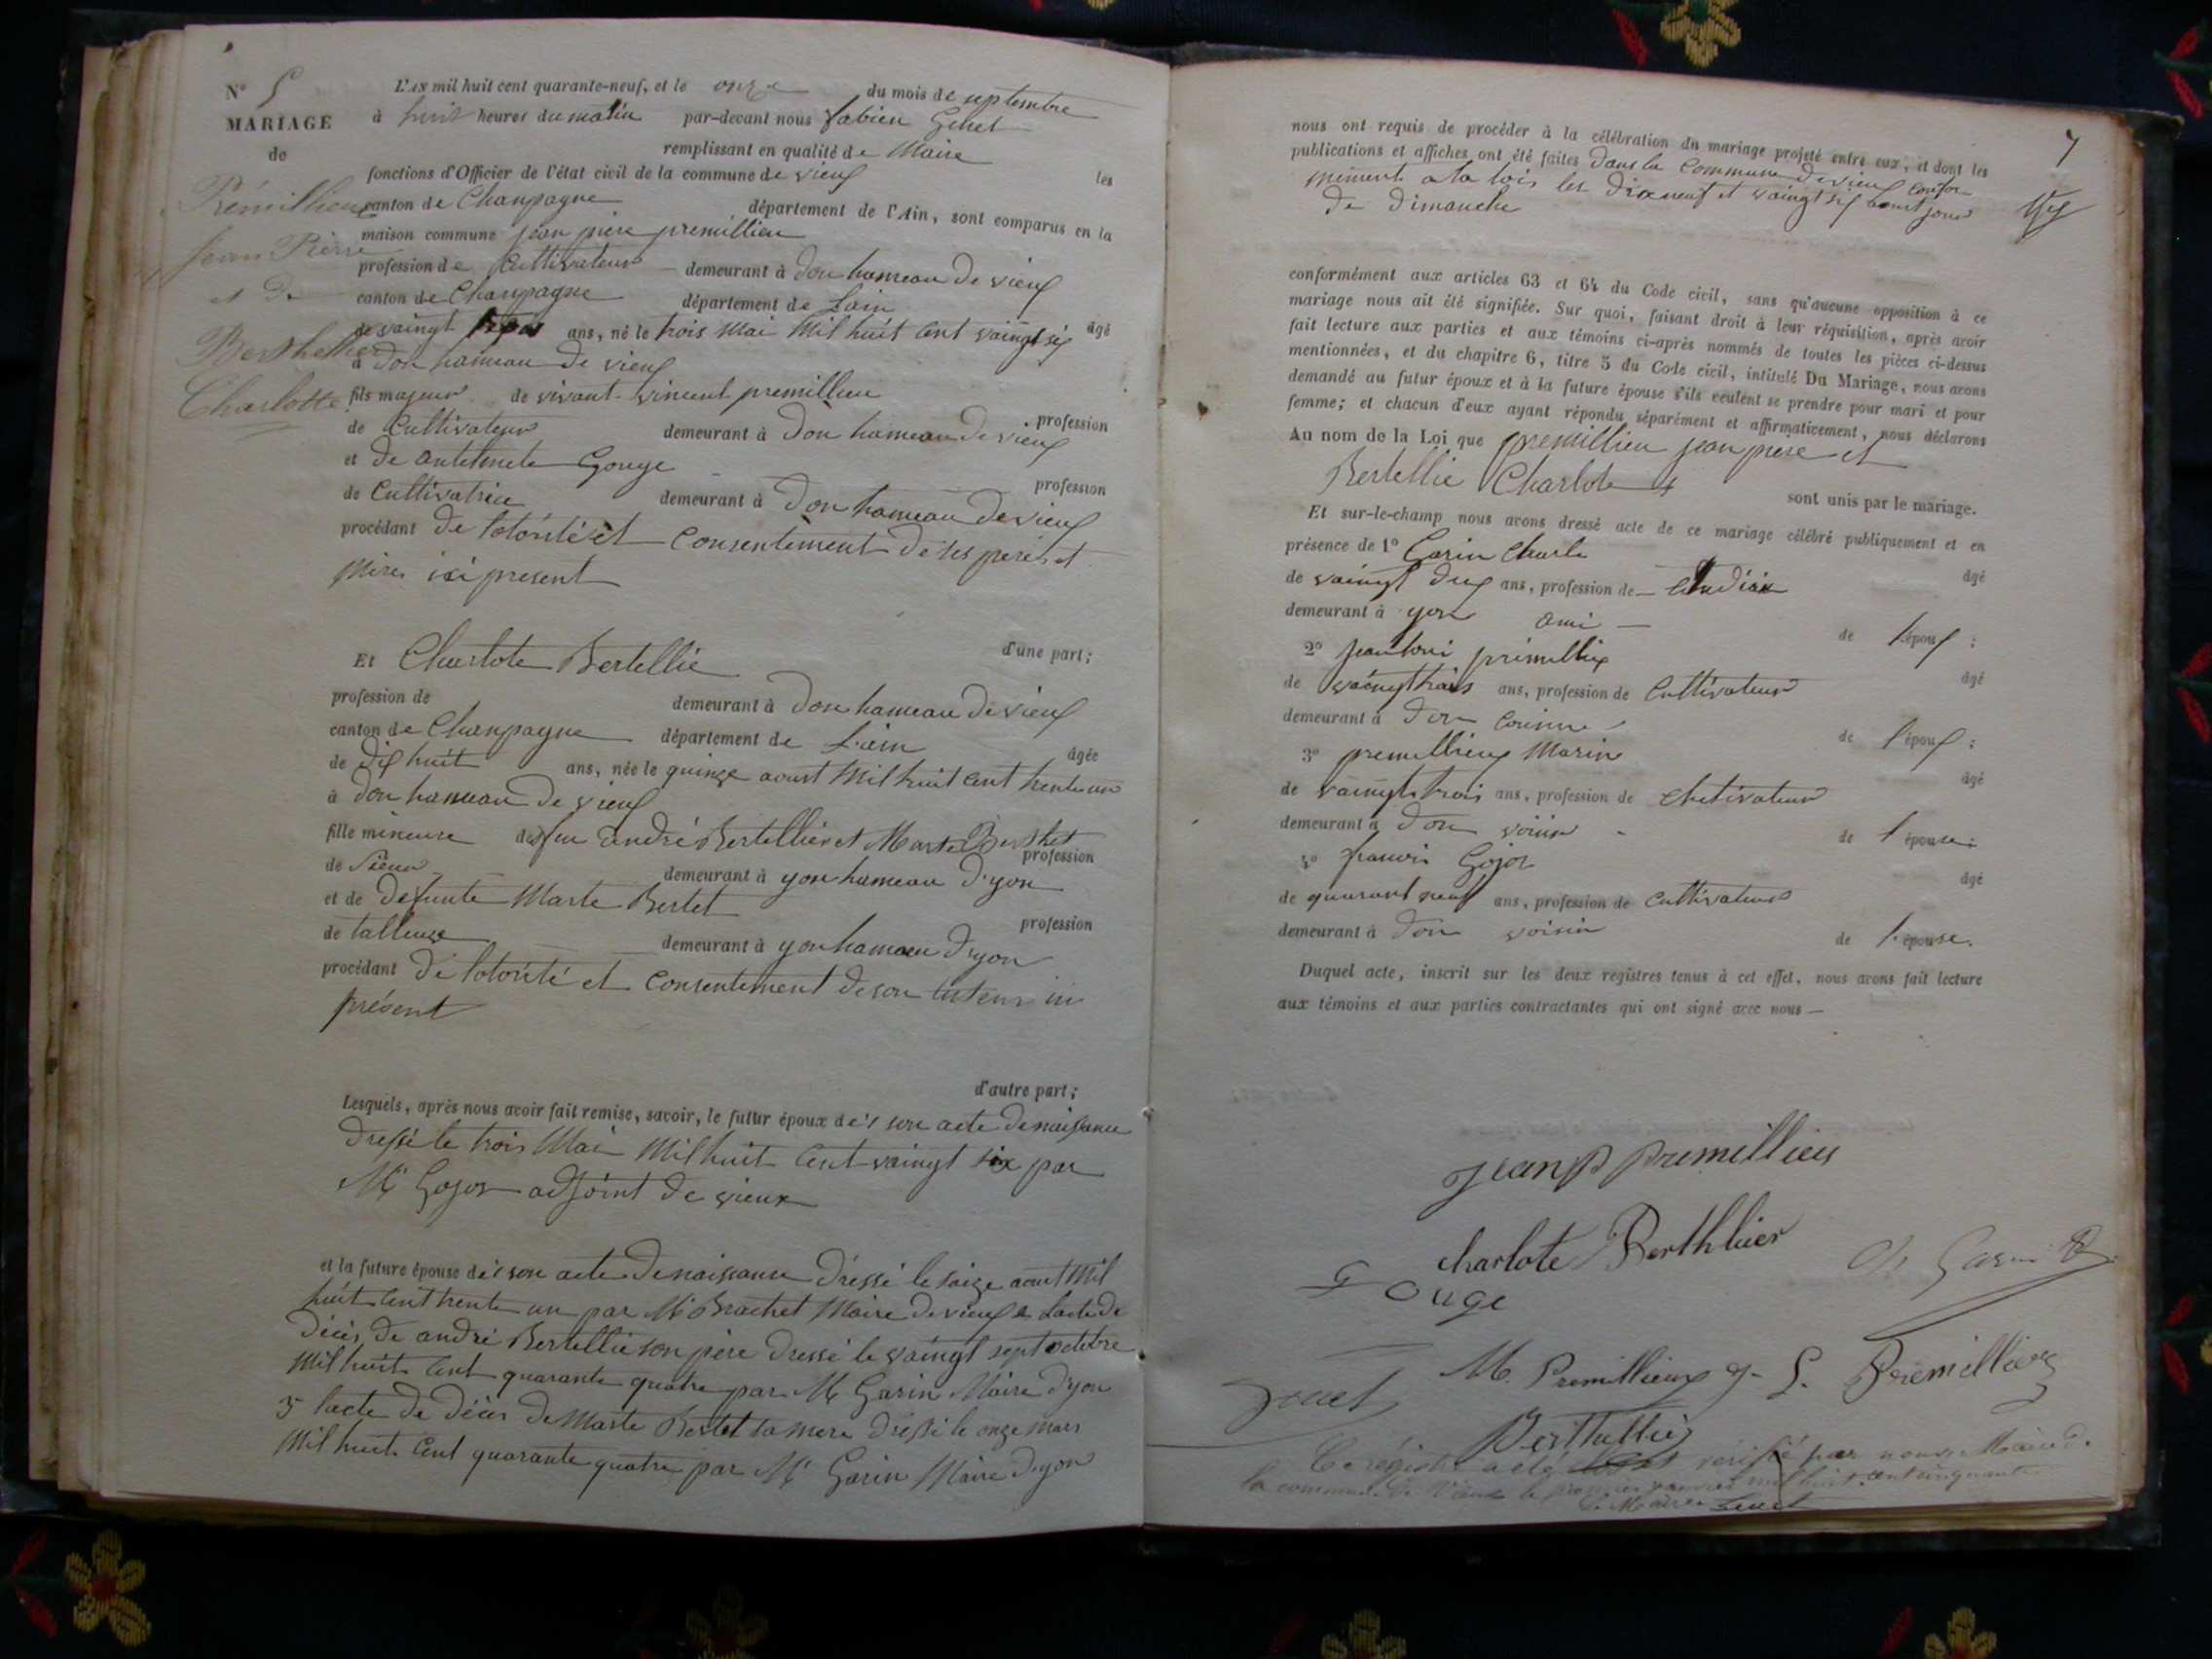 N° 5
MARIAGE
de
Prémillieux
Jean Pierre
et De
Berthellier
Charlotte
L'AN mil huit cent quarante-neuf, et le onze du mois de septembre
à huit heures du matin par-devant nous fabien
remplissant en qualité de Maire les
fonctions d'Officier de l'état civil de la commune de vieux
canton de Champagne département de l'Ain, sont comparus en la
maison commune jean piere premillieu
profession de Cultivateur demeurant à don hameau De vieux
canton de Champagne département de Lain âgé
de vaingt ans, né le trois Mai Mil huit Cent vaingt six
à don hameau De vieux
fils majeur de vivant vincent premillieu profession
de Cultivateur demeurant à Don hameau De vieux
et de Gouge profession
de Cultivatrice demeurant à Don hameau De vieux
procédant De lotorité et Consentement De ses peres et
meres ici present
d'une part;
Et Charlote Bertellie
profession de demeurant à Don hameau De vieux
canton de Champagne département de L'ain âgée
de Dix huit ans, née le quinze aoust Mil huit Cent trente un
à Don hameau De vieux
fille mineure des feu andré Bertellier et Marte Berthet profession
de demeurant à yon hameau D'yon
et de Defunte Marte Bertet profession
de talleuse demeurant à yon hameau D'yon
procédant De lotorité et Consentement de son tuteur ici
présent
d'autre part;
Lesquels, après nous avoir fait remise, savoir, le futur époux de 1 son acte De naissance
Dressé le trois Mai Mil huit Cent vaingt six par
Mr Gojos adjoint De vieux
et la future épouse de 1 son acte De naissance Dressé le saize aout Mil
huit Cent trente un par Mr Brachet Maire De vieux 2 Lacte De
Décès De andré Bertellie son père Dressé le vaingt sept octobre
Mil huit Cent quarante quatre par Mr Garin Maire D'yon
3 lacte De Décès De Marte Bertet sa mere Dressé le onze mars
Mil huit Cent quarante quatre par Mr Garin Maire D'yon
7
nous ont requis de procéder à la célébration du mariage projeté entre eux, et dont les
publications et affiches ont été faites Dans la Commune De vieux Confor
mement a la lois les Dix neuf et vaingt six aoust jour
De Dimanche
conformément aux articles 63 et 64 du Code civil, sans qu'aucune opposition à ce
mariage nous ait été signifiée. Sur quoi, faisant droit à leur réquisition, après avoir
fait lecture aux parties et aux témoins ci-après nommés de toutes les pièces ci-dessus
mentionnées, et du chapitre 6, titre 5 du Code civil, intitulé Du Mariage, nous avons
demandé au futur époux et à la future épouse s'ils veulent se prendre pour mari et pour
femme; et chacun d'eux ayant répondu séparément et affirmativement, nous déclarons
Au nom de la Loi que premillieu jean piere et
Bertellie Charlote sont unis par le mariage.
Et sur-le-champ nous avons dressé acte de ce mariage célébré publiquement et en
présence de 1° Garin Charle âgé
de vaingt Dux ans, profession de
demeurant à yon ami de l'époux :
2° âgé
de vaingt trois ans, profession de Cultivateur
demeurant à Don de l'époux :
3° premillieux Marin âgé
de vaingt trois ans, profession de
demeurant à Don voisin de l'épouse :
4° francois Gojos âgé
de quarant neuf ans, profession de Cultivateur
demeurant à Don voisin de l'épouse.
Duquel acte, inscrit sur les deux registres tenus à cet effet, nous avons fait lecture
aux témoins et aux parties contractantes qui ont signé avec nous —
jean p premillieu
charlote Berthlier
Ch Garin
Gouge
M. Premillieux
Premillieux
Ce régistre a été vérifié par nous Maire de
la commune de Vieux le premier janvier mil huit cent cinquante
Le Maire